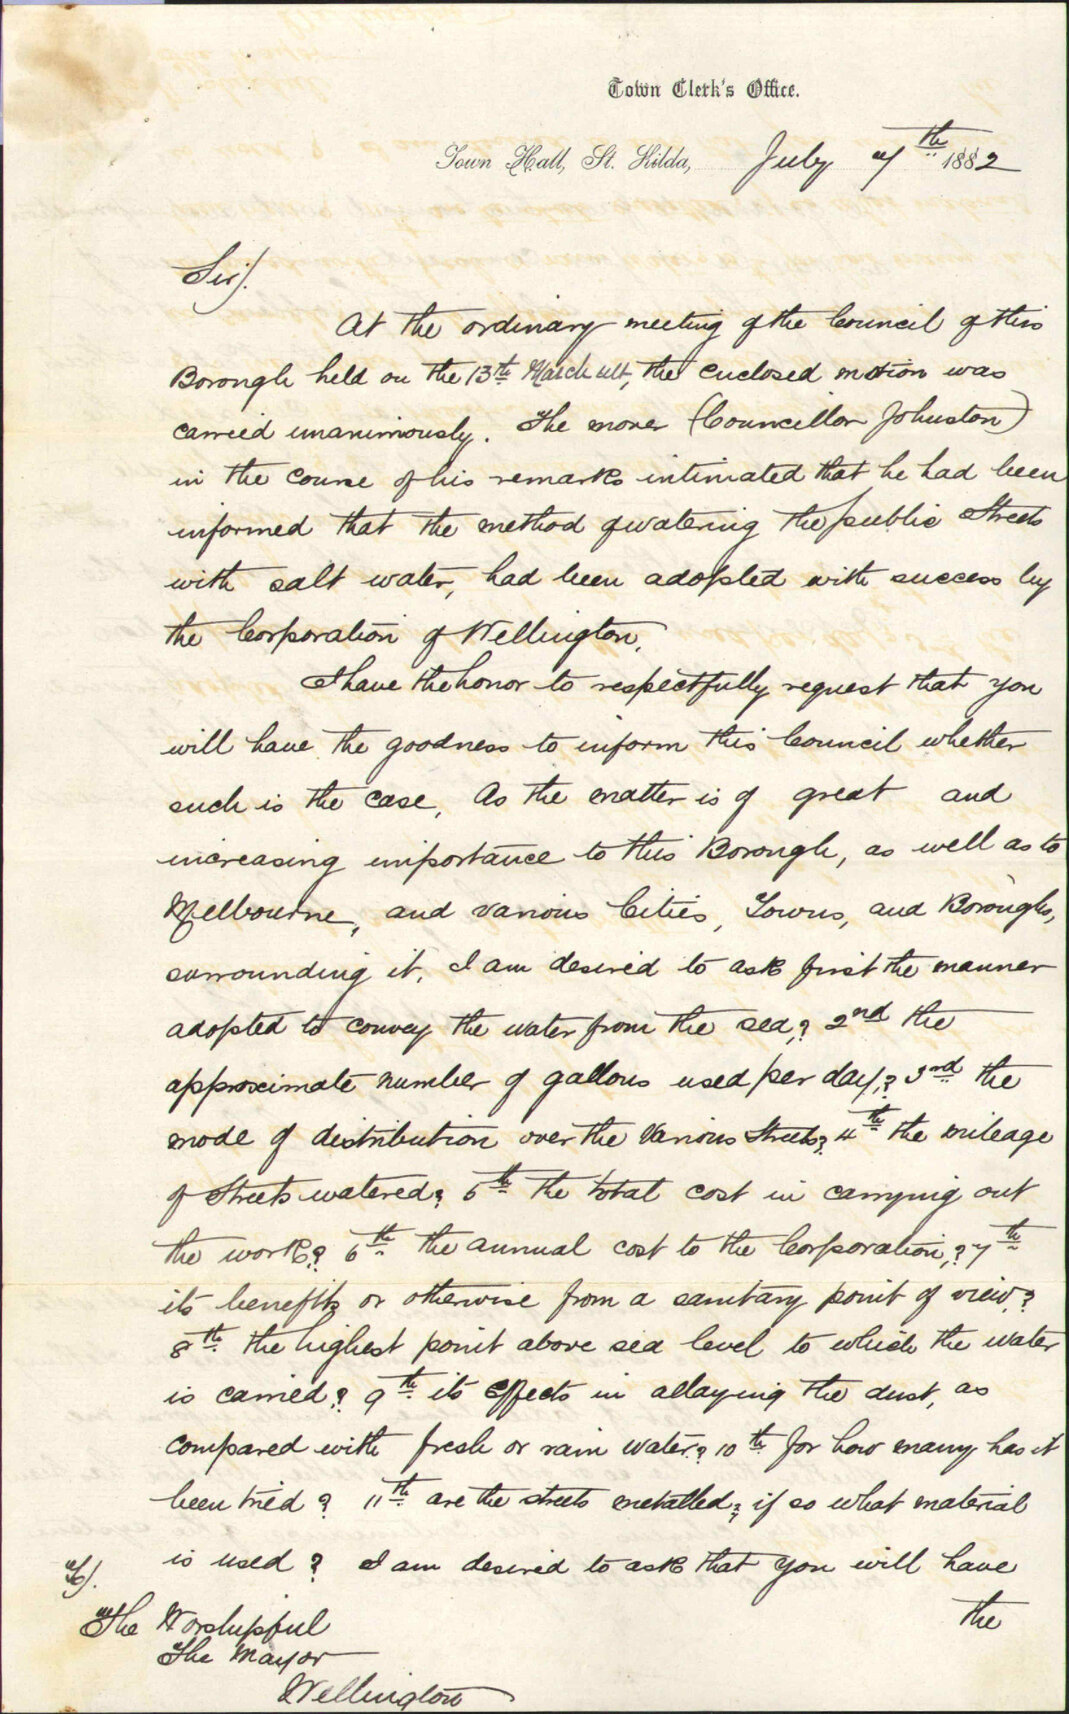 Town Clerk's Office.
Town Hall, St. Kilda, July 7th 1882
Sir/.
At the ordinary meeting of the Council of this
Borough held on the 13th March ult, the enclosed motion was
carried unanimously. The mover (Councillor Johnston)
in the course of his remarks intimated that he had been
informed that the method of watering the public Streets
with salt water, had been adopted with success by
the Corporation of Wellington.
I have the honor to respectfully request that you
will have the goodness to inform this Council whether
such is the case, As the matter is of great and
increasing importance to this Borough, as well as to
Melbourne, and various Cities, Towns, and Boroughs,
surrounding it. I am desired to ask first the manner
adopted to convey the water from the sea,? 2nd the
approximate number of gallons used per day,? 3rd the
mode of distribution over the Various Streets? 4th the mileage
of Streets watered? 5th the total cost in carrying out
the work,? 6th the annual cost to the Corporation,? 7th
its benefits or otherwise from a sanitary point of view,?
8th the highest point above sea level to which the water
is carried? 9th its Effects in allaying the dust, as
compared with fresh or rain water? 10th for how many has it
been tried? 11th are the streets metalled? if so what material
is used? I am desired to ask that you will have
the
To/.
The Worshipful
The Mayor
Wellington